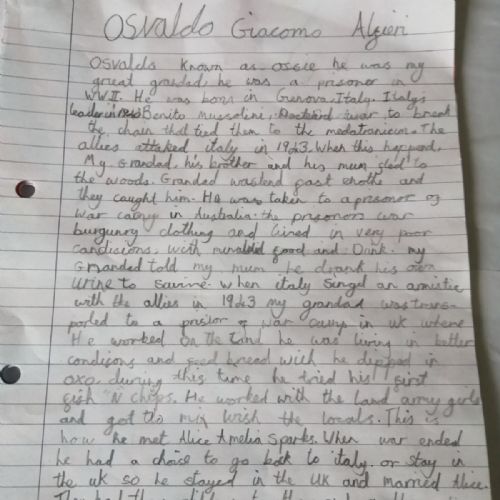 Osvaldo Giacomo Algieri
Osvaldo known as ossie he was my
great grandad, he was a prisoner in
WWII. He was born in Genova, Italy. Italy's
leader Benito Mussolini, war to break
the chain that tied them to the The
allies attacked italy in 1943. When this
My Grandad, his brother and his mum fled to
the woods. Grandad went past and
they caught him. He was taken to a prisoner of
war camp in Australia the prisoners war
burgunry clothing and lived in very poor
candisions. with food and Drink. my
Grandad told my mum he drank his own
urine to When italy singed an
with the allies in 1943 my grandad was trans-
ported to a prisior of war camp in uk where
He worked on the Land he was living in better
condisons and bread with he dipped in
oxo. during this time he tried his first
fish N chips. He worked with the Land army girls
and got to mix with the locals. This is
how he met Alice Amelia Sparks. When war ended
he had a choice to go back to italy. or stay in
the uk so he stayed in the UK and married Alice.
They had